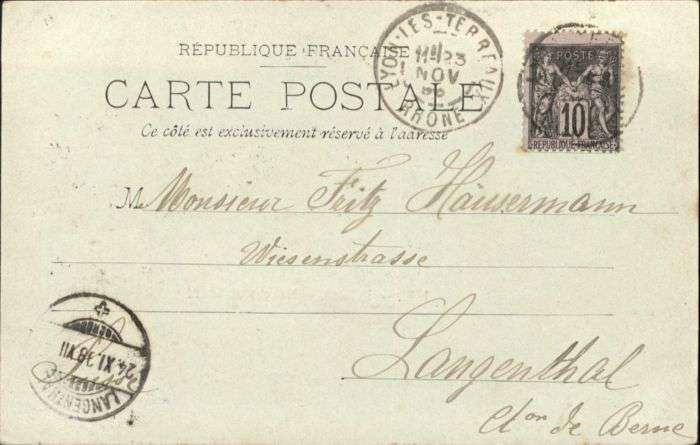 RÉPUBLIQUE FRANÇAISE
CARTE POSTALE
Ce côté est exclusivement réservé à l'adresse
LYON-LES-TERREAUX
23
NOV
RHONE
POSTE
10
RÉPUBLIQUE FRANÇAISE
M. Monsieur Fritz Häusermann
Wiesenstrasse
Langenthal
Cton de Berne
LANGENTHAL
24.XI.98.VII